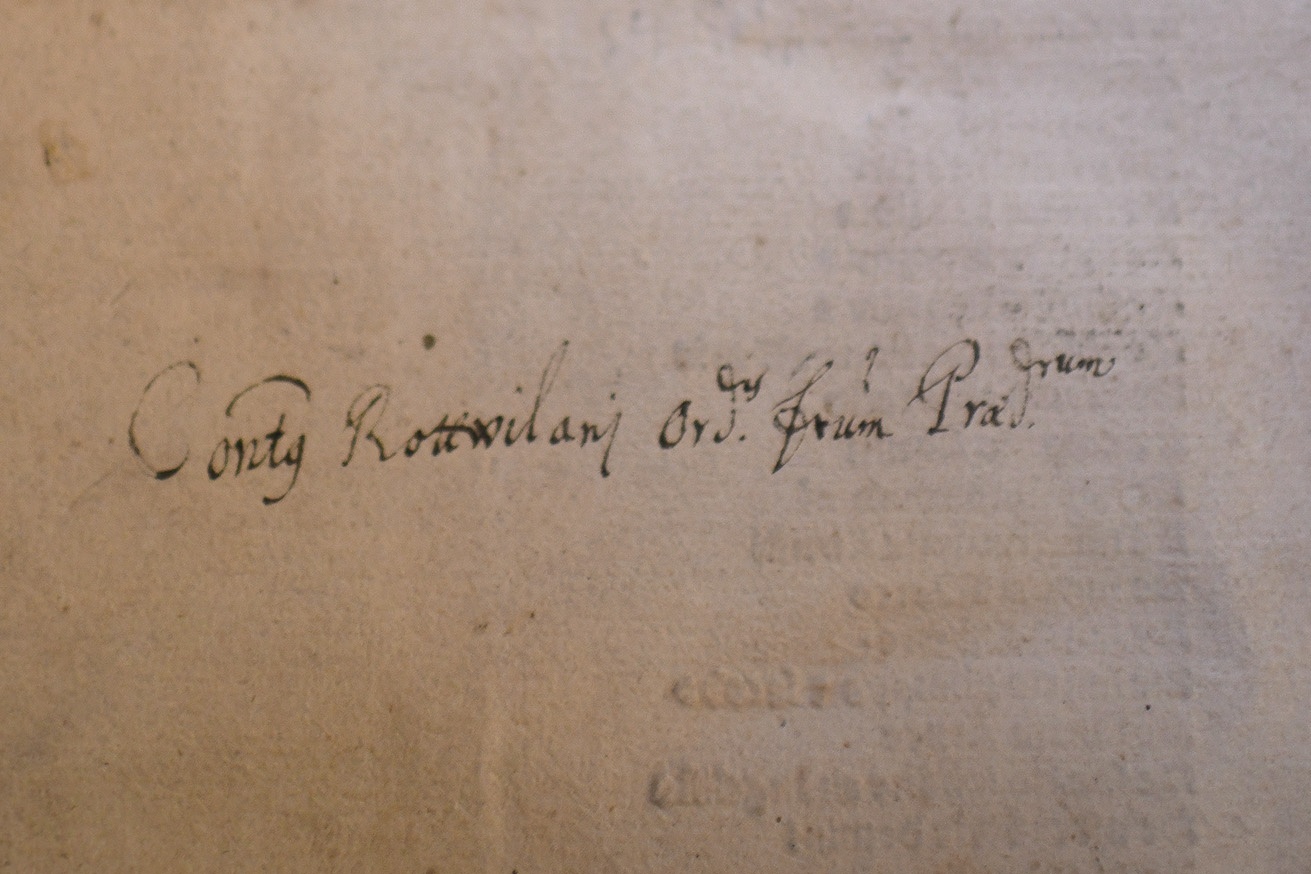 Contꝰ Rottwilanj Ord.is frum Præd.rum